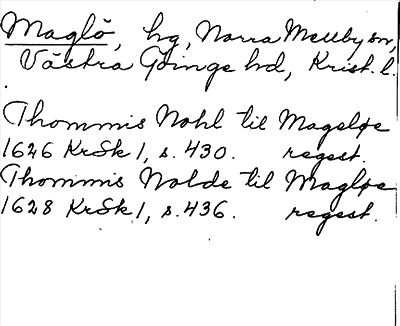 Maglö, hg, Norra Mellby sn,
Västra Göinge hd, Krist. l.
Thommis Nohl til Mageløe
1626 KrSk 1, s. 430. regest.
Thommis Nolde til Magløe
1628 KrSk 1, s. 436. regest.